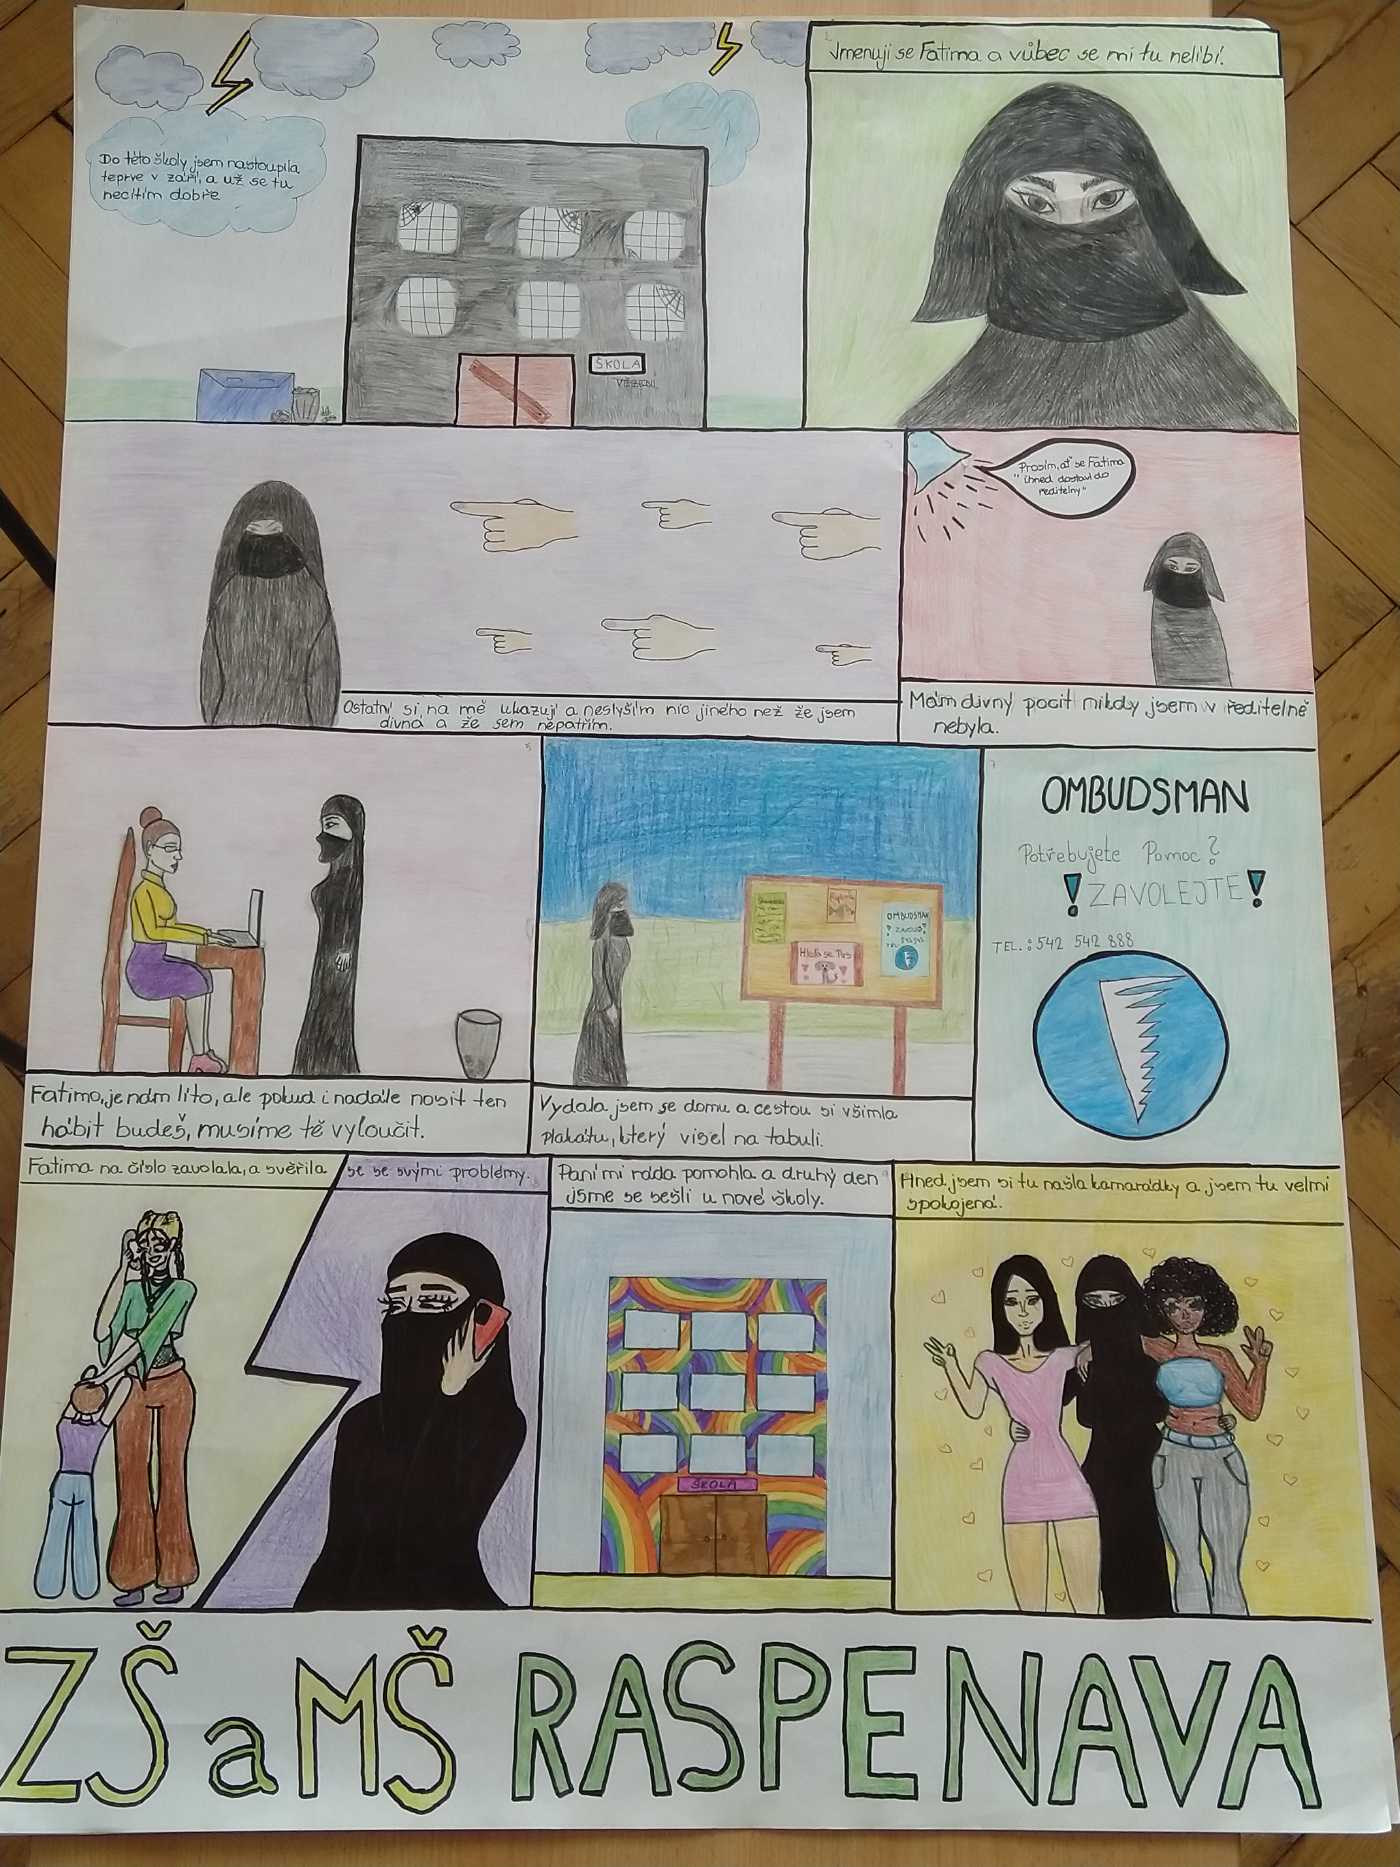 Do této školy jsem nastoupila
teprve v září, a už se tu
necítím dobře
ŠKOLA
VĚZENÍ
Jmenuji se Fatima a vůbec se mi tu nelíbí.
Ostatní si na mě ukazují a neslyším nic jiného než že jsem
divná a že sem nepatřím.
Prosím, ať se Fatima
"ihned dostaví do
ředitelny"
Mám divný pocit nikdy jsem v ředitelně
nebyla.
Fatimo, je nám líto, ale pokud i nadále nosit ten
hábit budeš, musíme tě vyloučit.
OMBUDSMAN
Hledá se Pes
Vydala jsem se domu a cestou si všimla
plakátu, který visel na tabuli.
OMBUDSMAN
Potřebujete Pomoc?
!ZAVOLEJTE!
TEL.: 542 542 888
Fatima na číslo zavolala, a svěřila se se svými problémy.
Paní mi ráda pomohla a druhý den
jsme se sešli u nové školy.
ŠKOLA
Hned jsem si tu našla kamarádky a jsem tu velmi
spokojená.
ZŠ a MŠ RASPENAVA